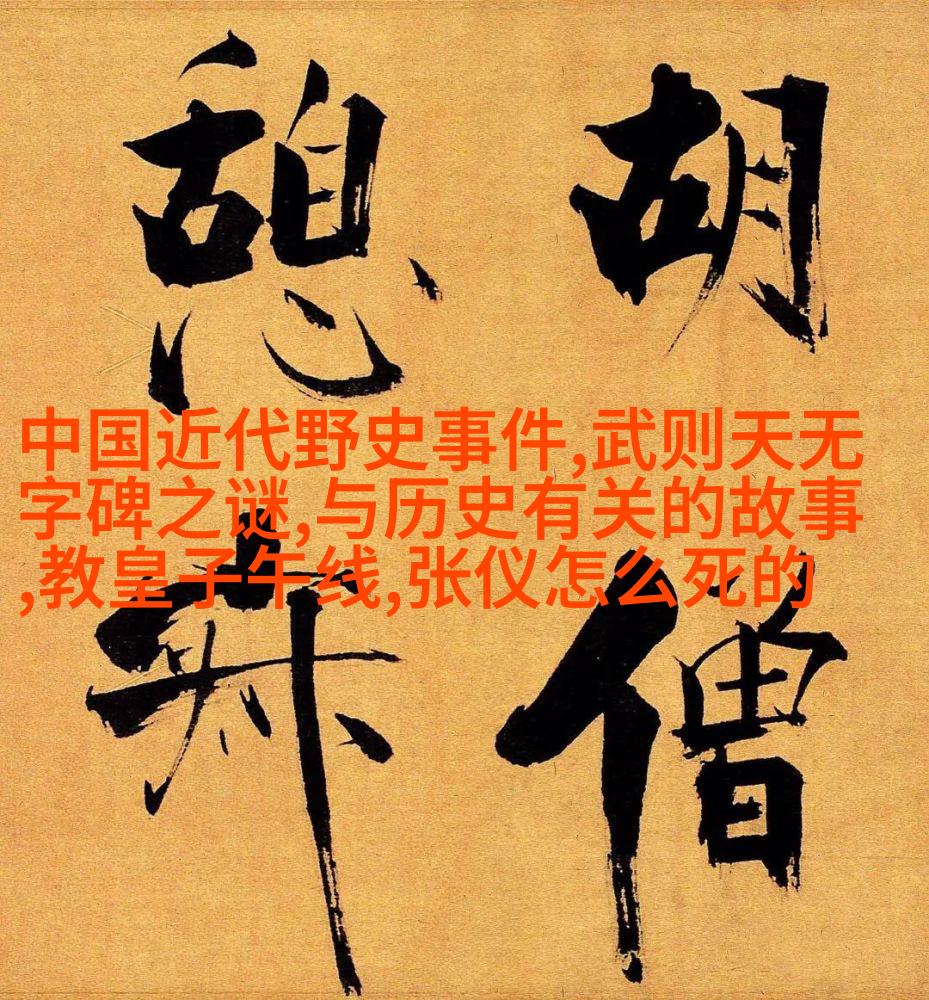 胡僧
憩
中国近代野史事件,武则天无
字碑之谜,与历史有关的故事
,教皇子午线,张仪怎么死的